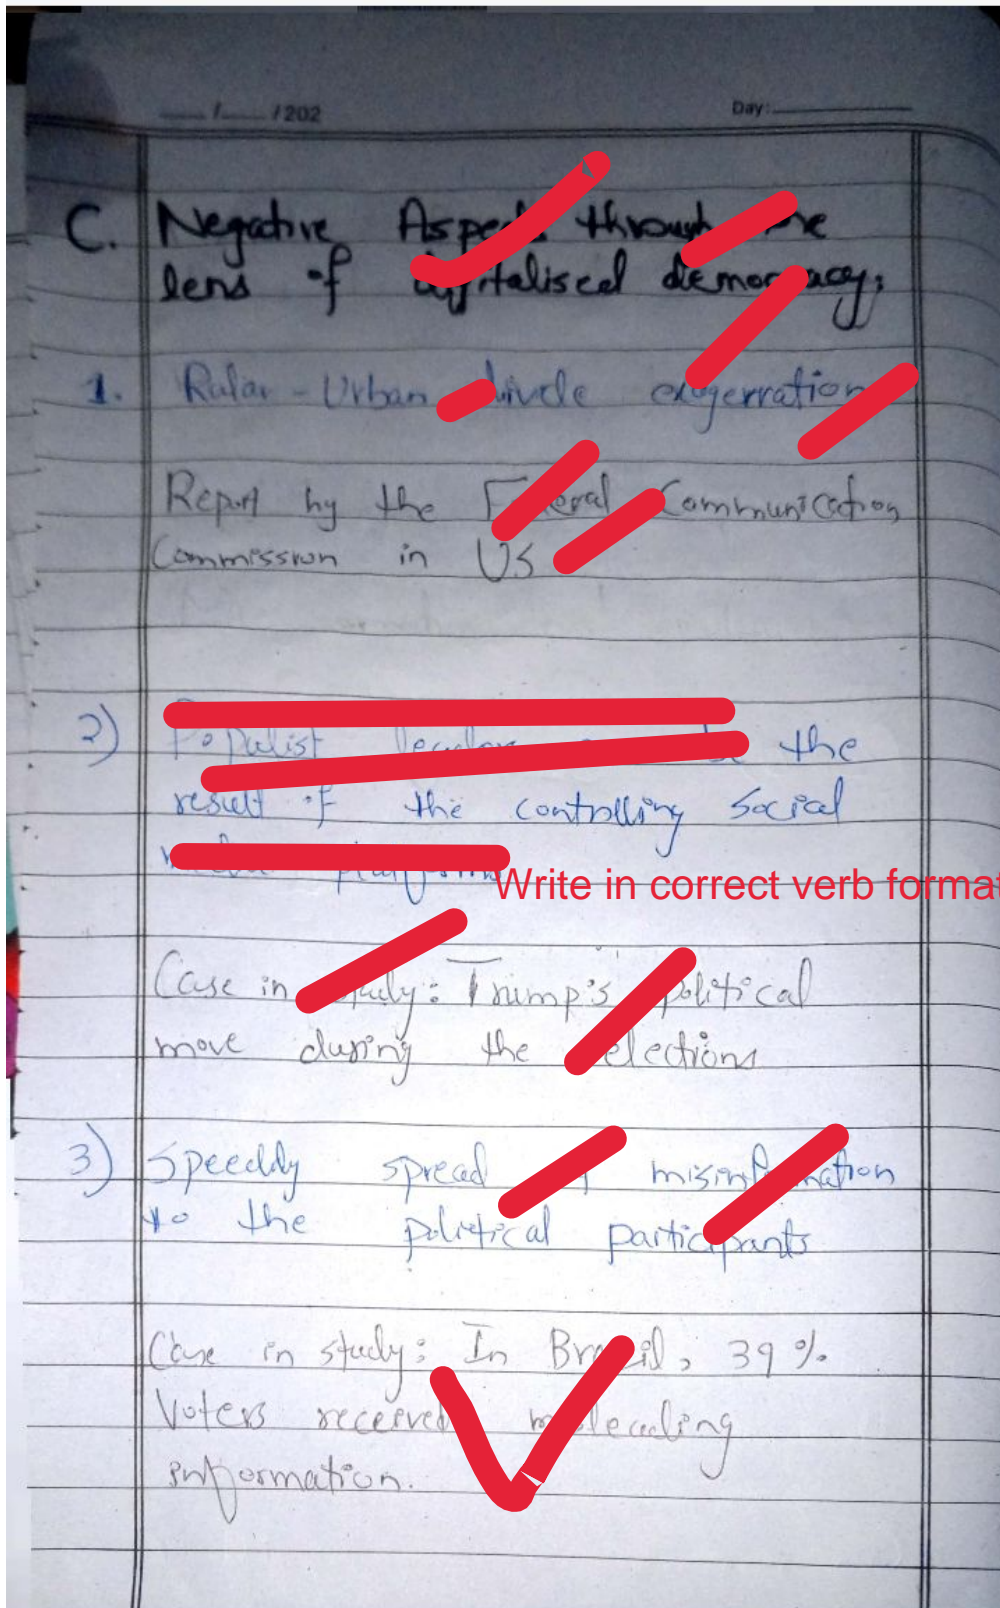 / /202 Day:
C. Negative Aspects through
lens of democracy;
1. Rular-Urban
Report by the Communication
Commission in US
2) Populist the
result of the controlling social
Write in correct verb format
Case in study: Trump's political
move during the elections
3) Speedly spread misinformation
to the political participants
Case in study: In Brazil, 39%
Voters received misleading
information.